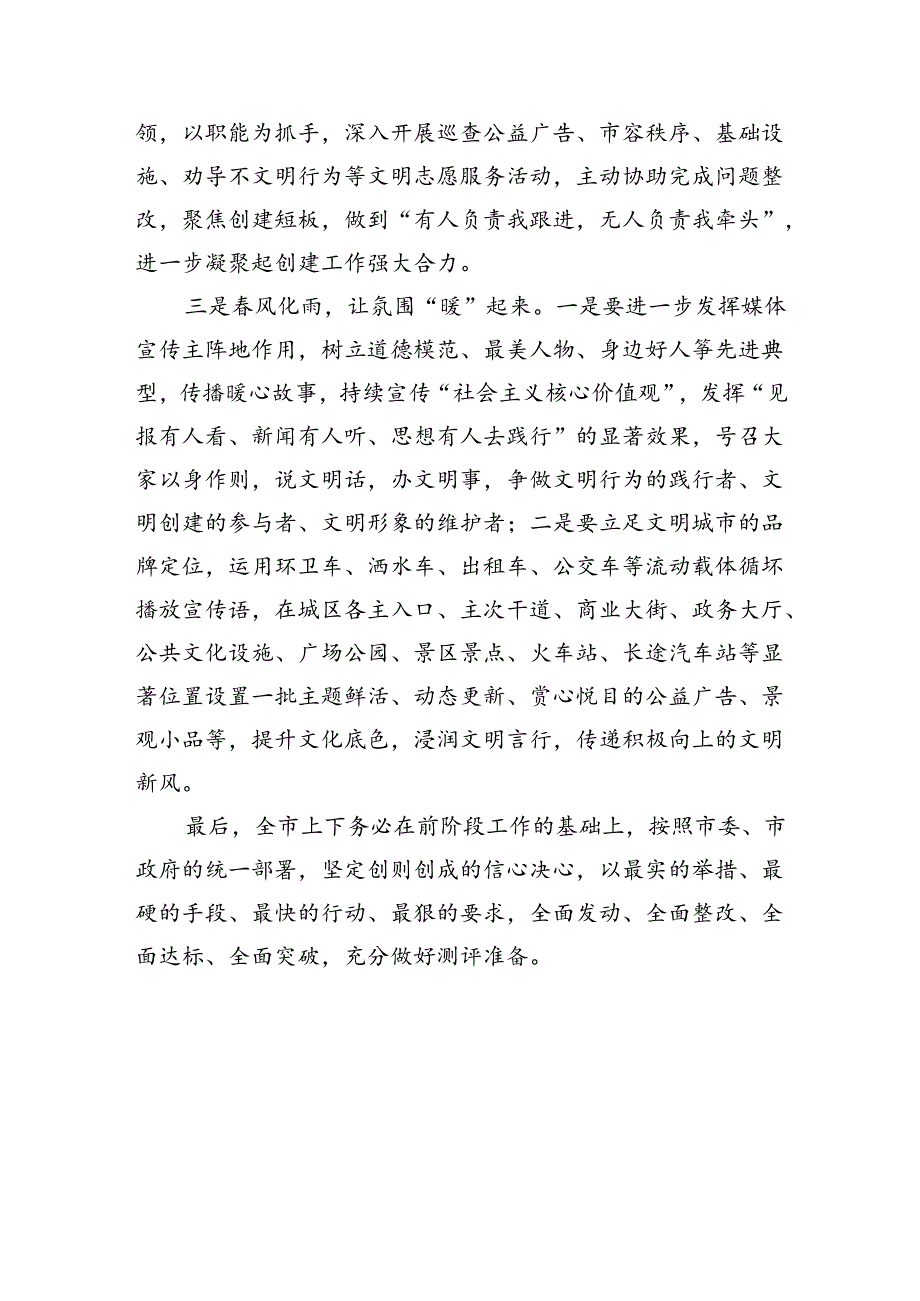 领，以职能为抓手，深入开展巡查公益广告、市容秩序、基础设
施、劝导不文明行为等文明志愿服务活动，主动协助完成问题整
改，聚焦创建短板，做到“有人负责我跟进，无人负责我牵头”，
进一步凝聚起创建工作强大合力。
三是春风化雨，让氛围“暖”起来。一是要进一步发挥媒体
宣传主阵地作用，树立道德模范、最美人物、身边好人筝先进典
型，传播暖心故事，持续宣传“社会主义核心价值观”，发挥“见
报有人看、新闻有人听、思想有人去践行”的显著效果，号召大
家以身作则，说文明话，办文明事，争做文明行为的践行者、文
明创建的参与者、文明形象的维护者；二是要立足文明城市的品
牌定位，运用环卫车、洒水车、出租车、公交车等流动载体循坏
播放宣传语，在城区各主入口、主次干道、商业大街、政务大厅、
公共文化设施、广场公园、景区景点、火车站、长途汽车站等显
著位置设置一批主题鲜活、动态更新、赏心悦目的公益广告、景
观小品等，提升文化底色，浸润文明言行，传递积极向上的文明
新风。
最后，全市上下务必在前阶段工作的基础上，按照市委、市
政府的统一部署，坚定创则创成的信心决心，以最实的举措、最
硬的手段、最快的行动、最狠的要求，全面发动、全面整改、全
面达标、全面突破，充分做好测评准备。